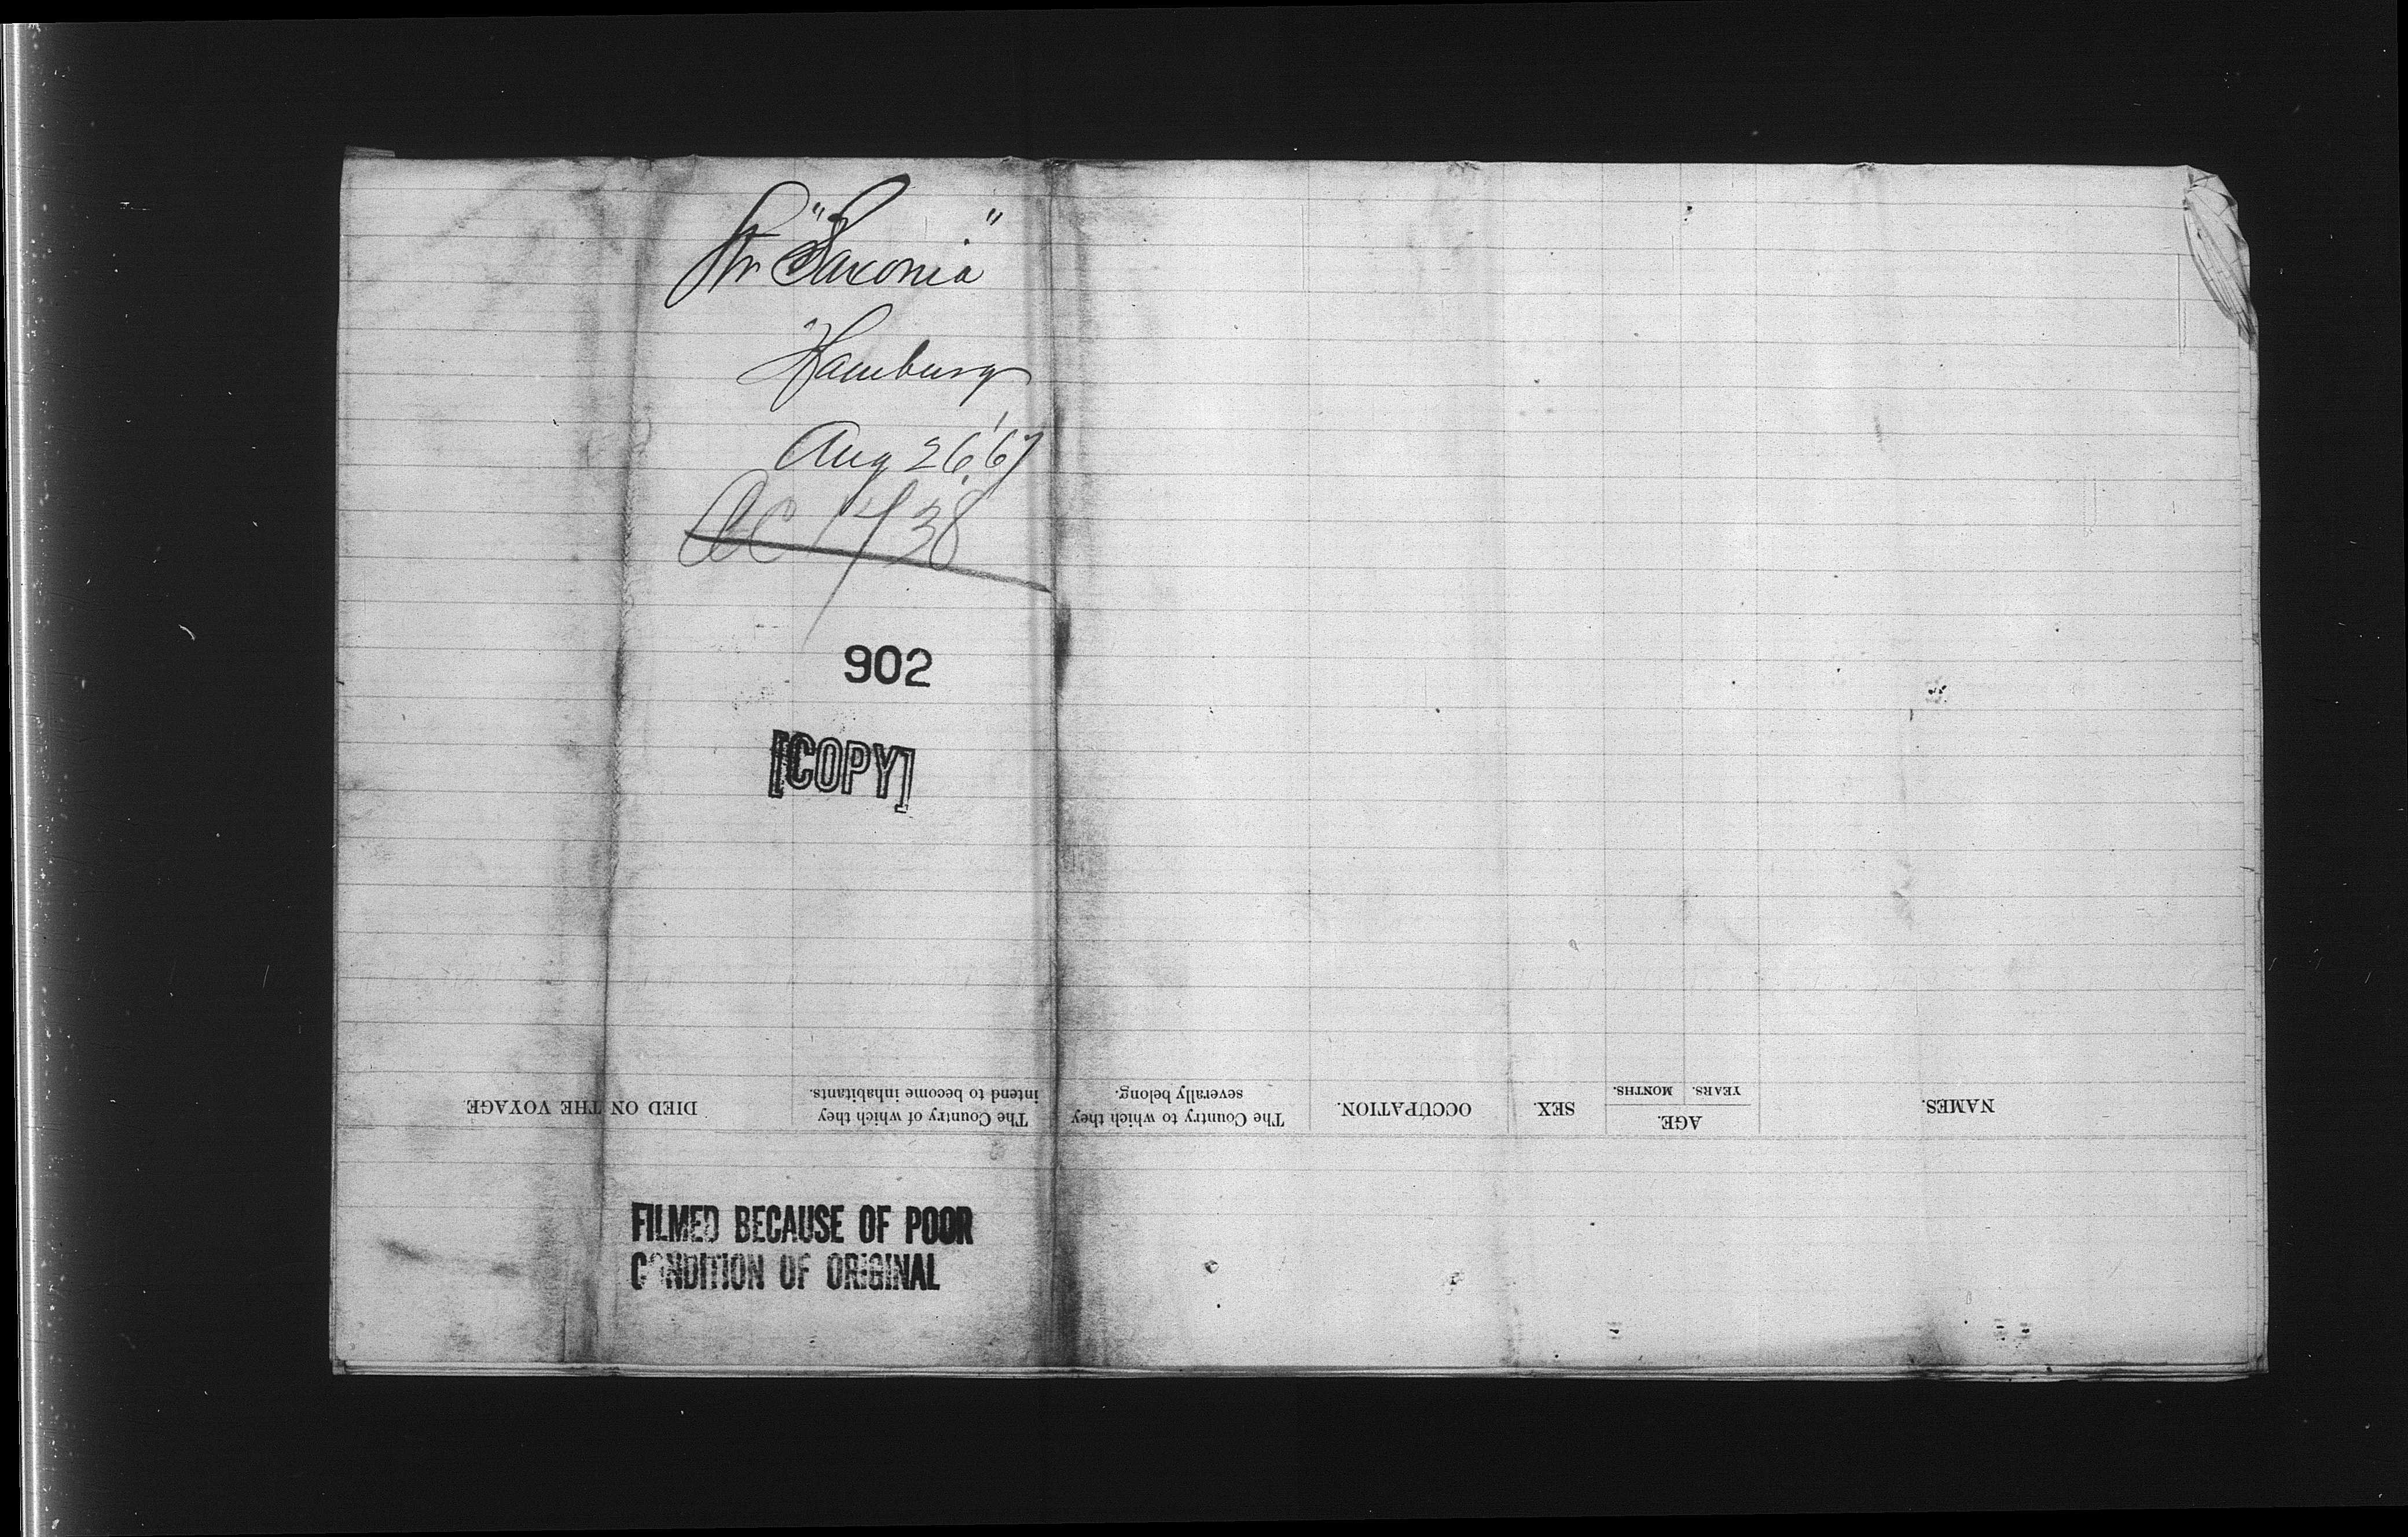 Str "Saxonia"
Hamburg
Aug 26 '67
1438
902
[COPY]
NAMES.
AGE.
YEARS. MONTHS.
SEX.
OCCUPATION.
The Country to which they
severally belong.
The Country of which they
intend to become inhabitants.
DIED ON THE VOYAGE
FILMED BECAUSE OF POOR
CONDITION OF ORIGINAL